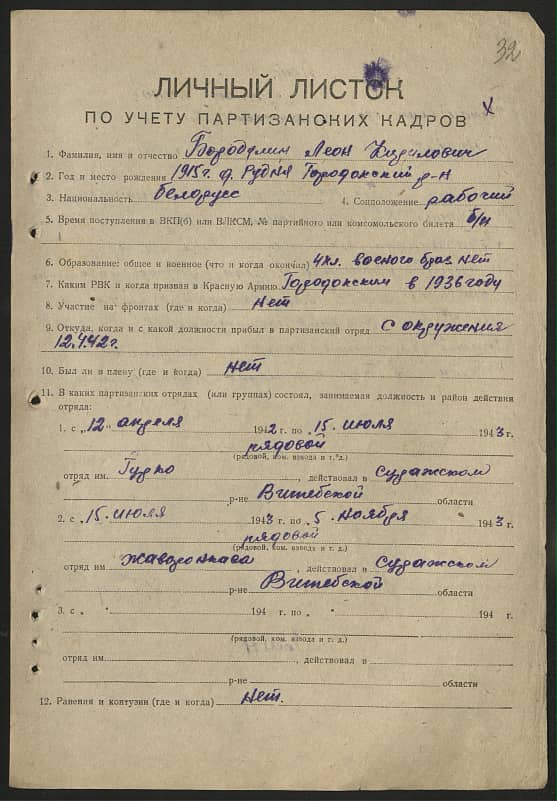 32
ЛИЧНЫЙ ЛИСТОК
ПО УЧЕТУ ПАРТИЗАНСКИХ КАДРОВ
1. Фамилия, имя и отчество Бородулин Леон Кирилович
2. Год и место рождения 1915 г. д. Рудня Городокский р-н
3. Национальность белорусс 4. Соцположение рабочий
5. Время поступления в ВКП(б) или ВЛКСМ, № партийного или комсомольского билета б/п
6. Образование: общее и военное (что и когда окончил) 4 кл. военого браз нет
7. Каким РВК и когда призван в Красную Армию Городокским в 1936 году
8. Участие на фронтах (где и когда) нет
9. Откуда, когда и с какой должности прибыл в партизанский отряд с окружения
12.4.42 г.
10. Был ли в плену (где и когда) нет
11. В каких партизанских отрядах (или группах) состоял, занимаемая должность и район действия
отряда:
1. с „12" апреля 1942 г. по „15" июля 1943 г.
рядовой
(рядовой, ком. взвода и т. д.)
отряд им. Гурко, действовал в Суражском
р-не Витебской области
2. с „15" июля 1943 г. по „5" ноября 1943 г.
рядовой
(рядовой, ком. взвода и т. д.)
отряд им Жаворонкова, действовал в Суражском
р-не Витебской области
3. с „ " 194 г. по „ " 194 г.
(рядовой, ком. взвода и т. д.)
отряд им., действовал в
р-не области
12. Ранения и контузии (где и когда) нет.